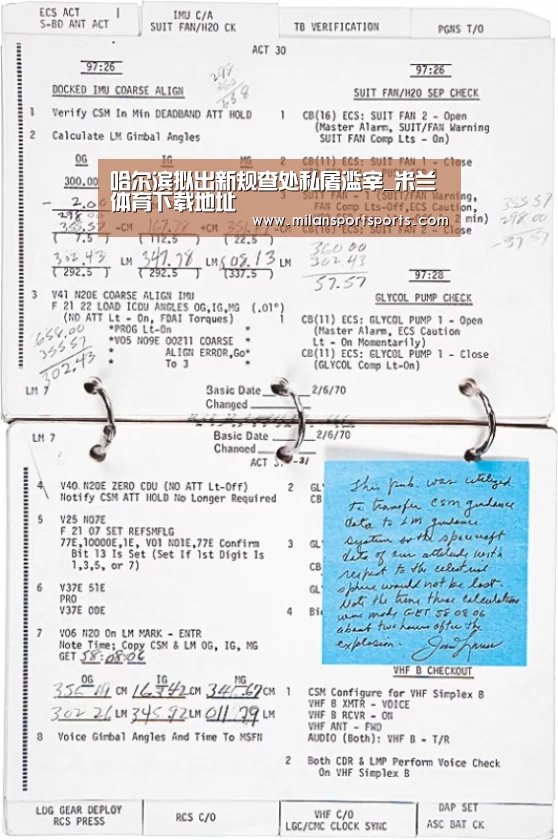 ECS ACT
S-BD ANT ACT
IMU C/A
SUIT FAN/H2O CK
TB VERIFICATION
PGNS T/O
ACT 30
97:26
DOCKED IMU COARSE ALIGN
1 Verify CSM In Min DEADBAND ATT HOLD
2 Calculate LM Gimbal Angles
OG IG MG
300.00
- 2.0
298.00
355.57 -CM +CM
( 7.5 ) (112.5 ) (22.5 )
302.43 LM 347.78 LM 508.13 LM
(292.5 ) (292.5 ) (337.5 )
3 V41 N20E COARSE ALIGN IMU
F 21 22 LOAD ICDU ANGLES OG,IG,MG (.01°)
(NO ATT Lt - On, FDAI Torques)
*PROG Lt-On *
*V05 N09E 00211 COARSE *
* ALIGN ERROR,Go*
* To 3 *
658.00
355.57
302.43
298
360
658
97:26
SUIT FAN/H2O SEP CHECK
1 CB(16) ECS: SUIT FAN 2 - Open
(Master Alarm, SUIT/FAN Warning
Suit Fan Comp Lts - On)
2 CB(11) ECS: SUIT FAN 1 - Close
哈尔滨拟出新规查处私屠滥宰_米兰
体育下载地址
www.milansportsports.com
3 SUIT FAN - 1 (SUIT/FAN Warning,
FAN Comp Lts-Off,ECS Caution,
2 min)
CB(16) ECS: SUIT FAN 2 - Close
355.57
298.00
-57.57
360.00
302.43
57.57
97:28
GLYCOL PUMP CHECK
1 CB(11) ECS: GLYCOL PUMP 1 - Open
(Master Alarm, ECS Caution
Lt - On Momentarily)
CB(11) ECS: GLYCOL PUMP 1 - Close
(GLYCOL Comp Lt-On)
LM 7
Basic Date 2/6/70
Changed
LM 7
Basic Date 2/6/70
Changed
ACT
4 V40 N20E ZERO CDU (NO ATT Lt-Off)
Notify CSM ATT HOLD No Longer Required
5 V25 N07E
F 21 07 SET REFSMFLG
77E,10000E,1E, V01 N01E,77E Confirm
Bit 13 Is Set (Set If 1st Digit Is
1,3,5, or 7)
6 V37E 51E
PRO
V37E 00E
7 V06 N20 On LM MARK - ENTR
Note Time; Copy CSM & LM OG, IG, MG
GET 58:08:06
OG IG MG
CM CM CM
302 26 LM 345.92 LM 011.79 LM
8 Voice Gimbal Angles And Time To MSFN
2 GL
CB
3 GL
CB
GL
4
This pub. was utilized
to transfer CSM guidance
data to LM guidance
system so the spacecraft
data of our attitude with
respect to the celestial
sphere would not be lost.
Note the time these calculations
were made GET 58 08 06
about two hours after the
explosion.
VHF B CHECKOUT
1 CSM Configure for VHF Simplex B
VHF B XMTR - VOICE
VHF B RCVR - ON
VHF ANT - FWD
AUDIO (Both): VHF B - T/R
2 Both CDR & LMP Perform Voice Check
On VHF Simplex B
LDG GEAR DEPLOY
RCS PRESS
RCS C/O
VHF C/O
LGC/CMC CLOCK SYNC
DAP SET
ASC BAT CK